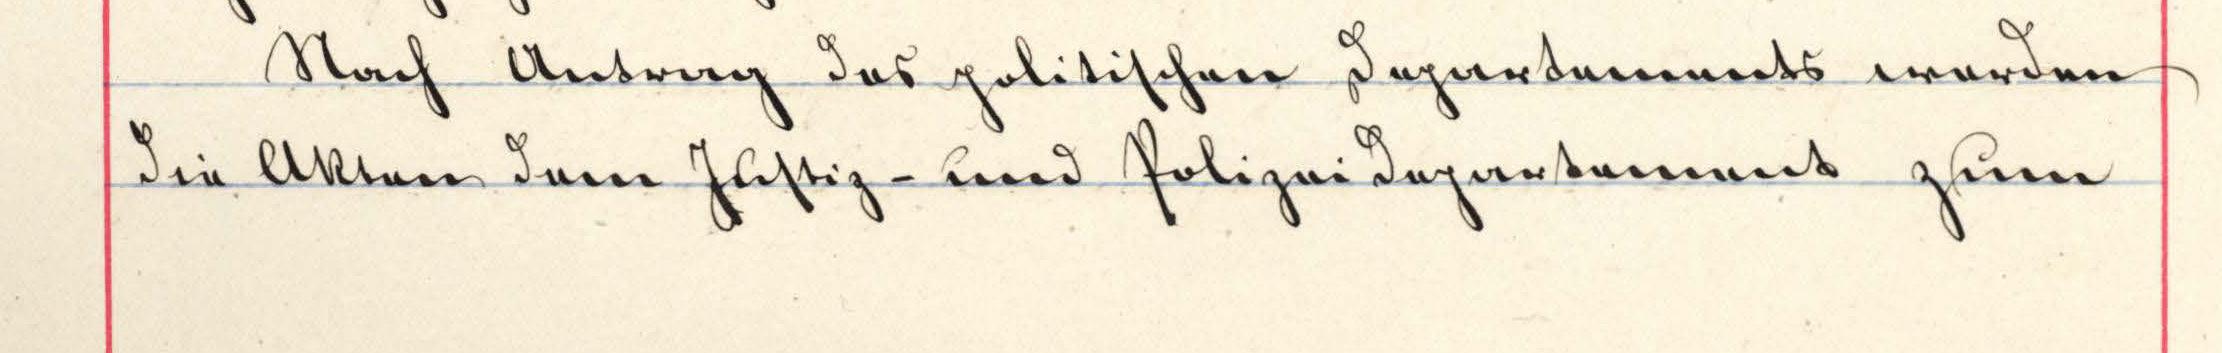 Nach Antrag des politischen Departements werden
die Akten dem Justiz- und Polizeidepartement zum